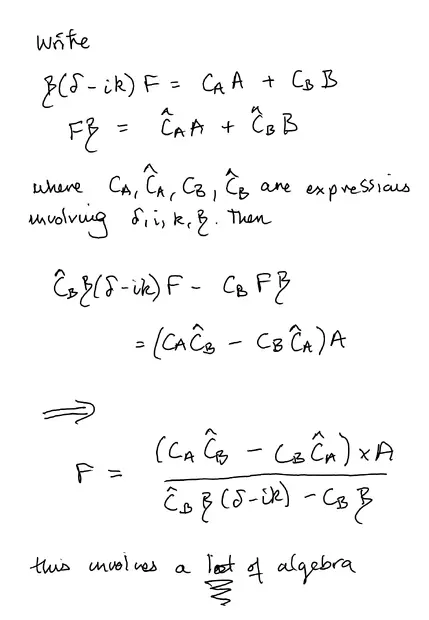 Write
ξ(δ-ik) F = C_A A + C_B B
Fξ = Ĉ_A A + Ĉ_B B
where C_A, Ĉ_A, C_B, Ĉ_B are expressions
involving δ, i, k, ξ. Then
Ĉ_B ξ(δ-ik) F - C_B F ξ
= (C_A Ĉ_B - C_B Ĉ_A) A
⟹
(C_A Ĉ_B - C_B Ĉ_A) × A
F =
Ĉ_B ξ (δ-ik) - C_B ξ
this involves a lot of algebra